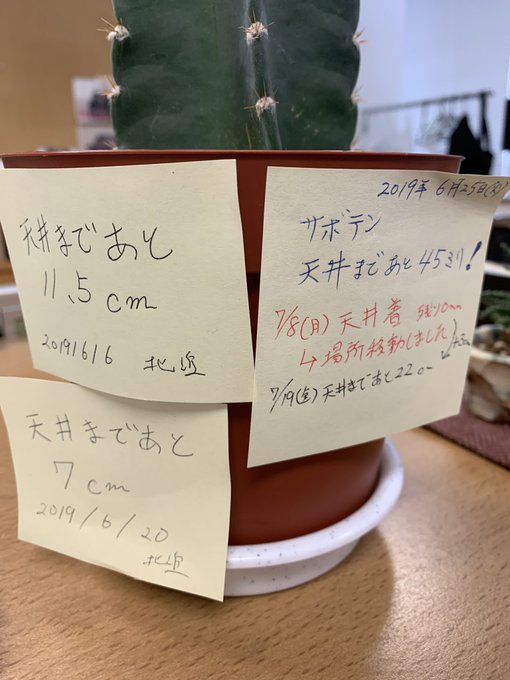 天井まであと
11.5 cm
2019/6/6 北迫
天井まであと
7cm
2019/6/20
北迫
2019年 6月25日(火)
サボテン
天井まであと 45ミリ!
7/8(月) 天井着 残10mm
↳場所移動しました
7/19(金) 天井まであと22cm